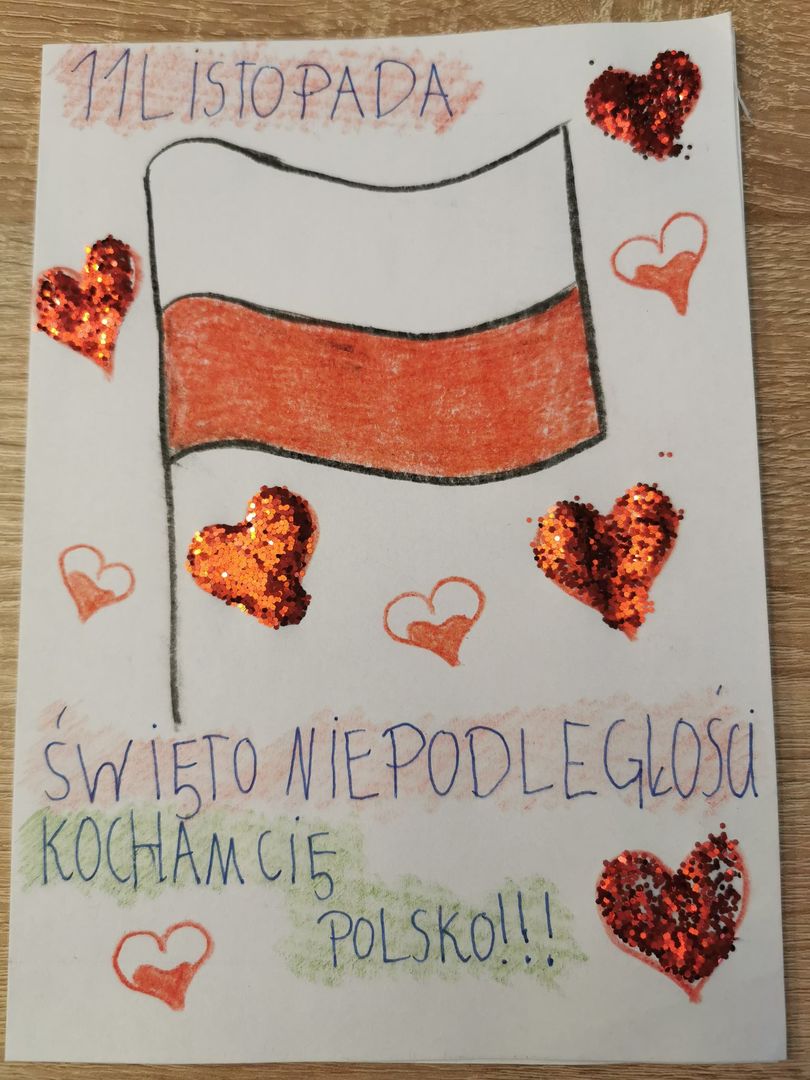 11 LISTOPADA
ŚWIĘTO NIEPODLEGŁOŚCI
KOCHAM CIĘ
POLSKO!!!